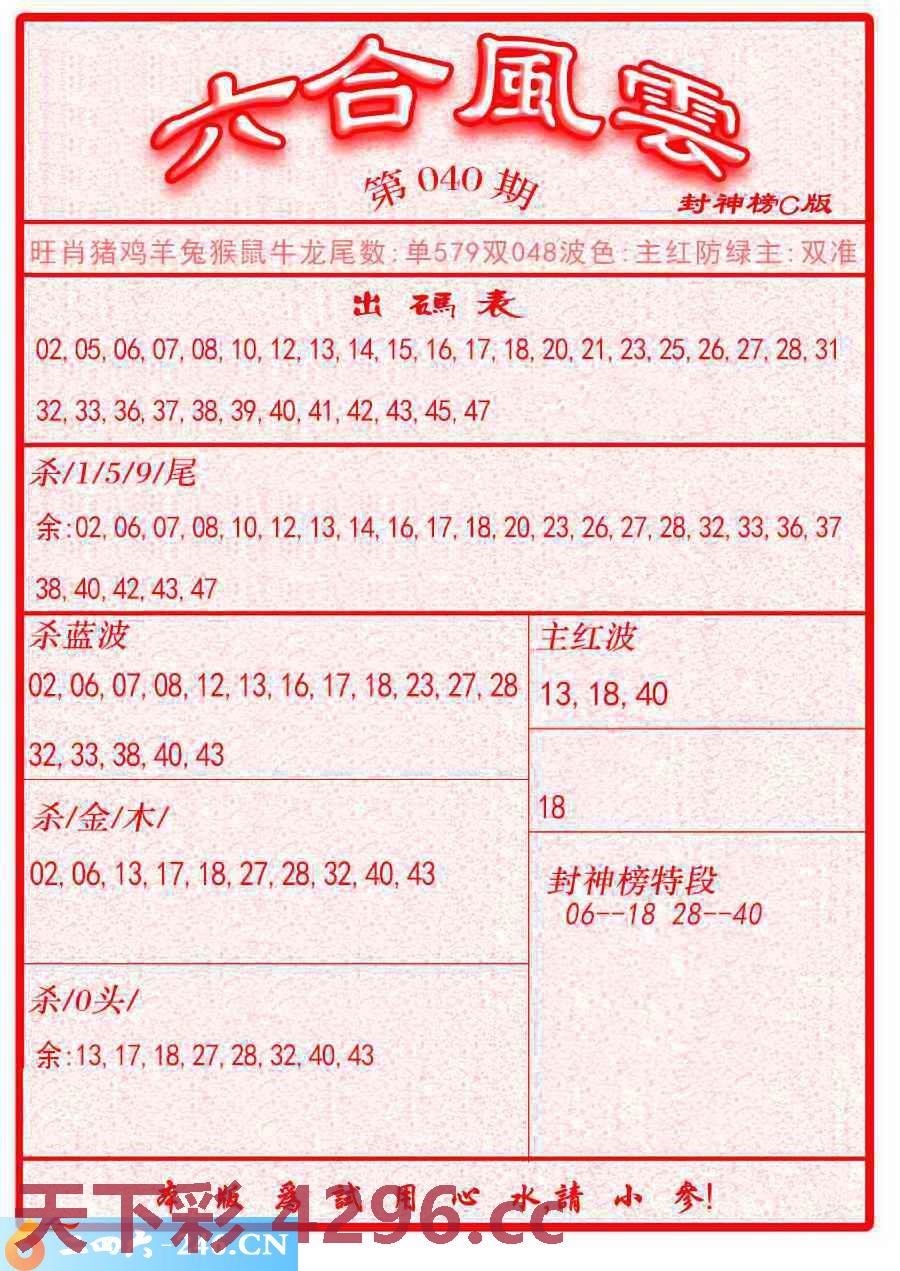 六合風雲
第040期
封神榜C版
旺肖猪鸡羊兔猴鼠牛龙尾数:单579双048波色:主红防绿主:双准
出碼表
02,05,06,07,08,10,12,13,14,15,16,17,18,20,21,23,25,26,27,28,31
32,33,36,37,38,39,40,41,42,43,45,47
杀/1/5/9/尾
余:02,06,07,08,10,12,13,14,16,17,18,20,23,26,27,28,32,33,36,37
38,40,42,43,47
杀蓝波
02,06,07,08,12,13,16,17,18,23,27,28
32,33,38,40,43
主红波
13,18,40
18
杀/金/木/
02,06,13,17,18,27,28,32,40,43
封神榜特段
06--18 28--40
杀/0头/
余:13,17,18,27,28,32,40,43
本版為試用心水,請小參!
天下彩 4296.cc
二四六-246.CN